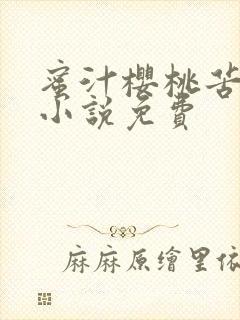 蜜汁櫻桃苦
小說免費
麻麻原繪里依